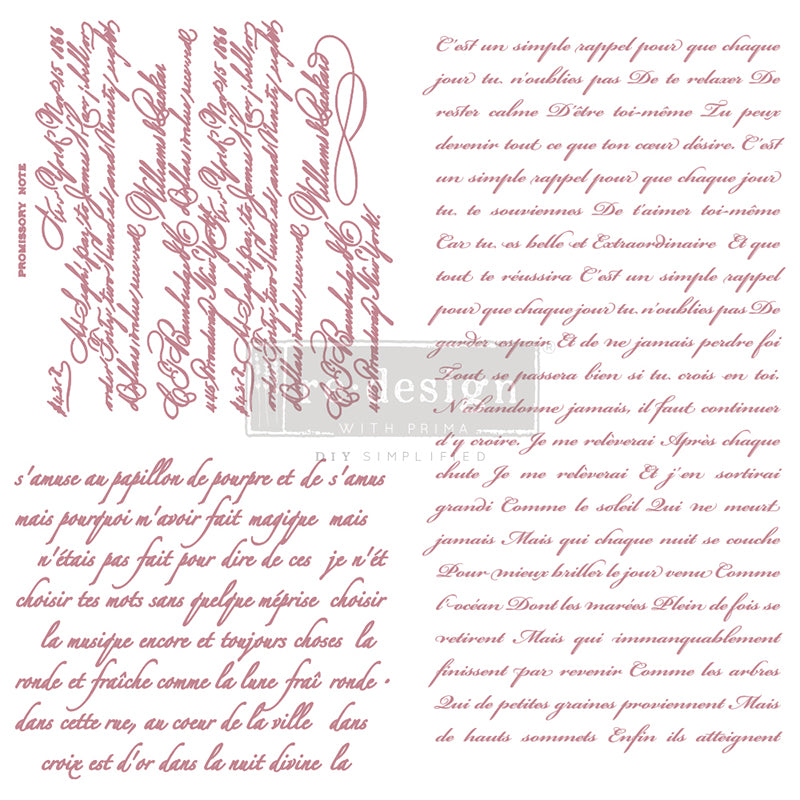 PROMISSORY NOTE
New York Nov 15 1866
At Sight pay to James
order Fifty two Hundred and Ninety eight
Dollars value received
Willcuns & Parker
445 Broadway New York
C'est un simple rappel pour que chaque
jour tu n'oublies pas De te relaxer De
rester calme D'être toi-même Tu peux
devenir tout ce que ton cœur désire. C'est
un simple rappel pour que chaque jour
tu te souviennes De t'aimer toi-même
Car tu es belle et Extraordinaire Et que
tout te réussira C'est un simple rappel
pour que chaque jour tu n'oublies pas De
garder espoir Et de ne jamais perdre foi
Tout se passera bien si tu crois en toi.
N'abandonne jamais, il faut continuer
d'y croire. Je me relèverai Après chaque
chute Je me relèverai Et j'en sortirai
grandi Comme le soleil Qui ne meurt
jamais Mais qui chaque nuit se couche
Pour mieux briller le jour venu Comme
l'océan Dont les marées Plein de fois se
retirent Mais qui immanquablement
finissent par revenir Comme les arbres
Qui de petites graines proviennent Mais
de hauts sommets Enfin ils atteignent
re·design
WITH PRIMA
DIY SIMPLIFIED
s'amuse au papillon de pourpre et de s'amus
mais pourquoi m'avoir fait magique mais
n'étais pas fait pour dire de ces je n'ét
choisir tes mots sans quelque méprise choisir
la musique encore et toujours choses la
ronde et fraîche comme la lune fraî ronde ·
dans cette rue, au coeur de la ville dans
croix est d'or dans la nuit divine la